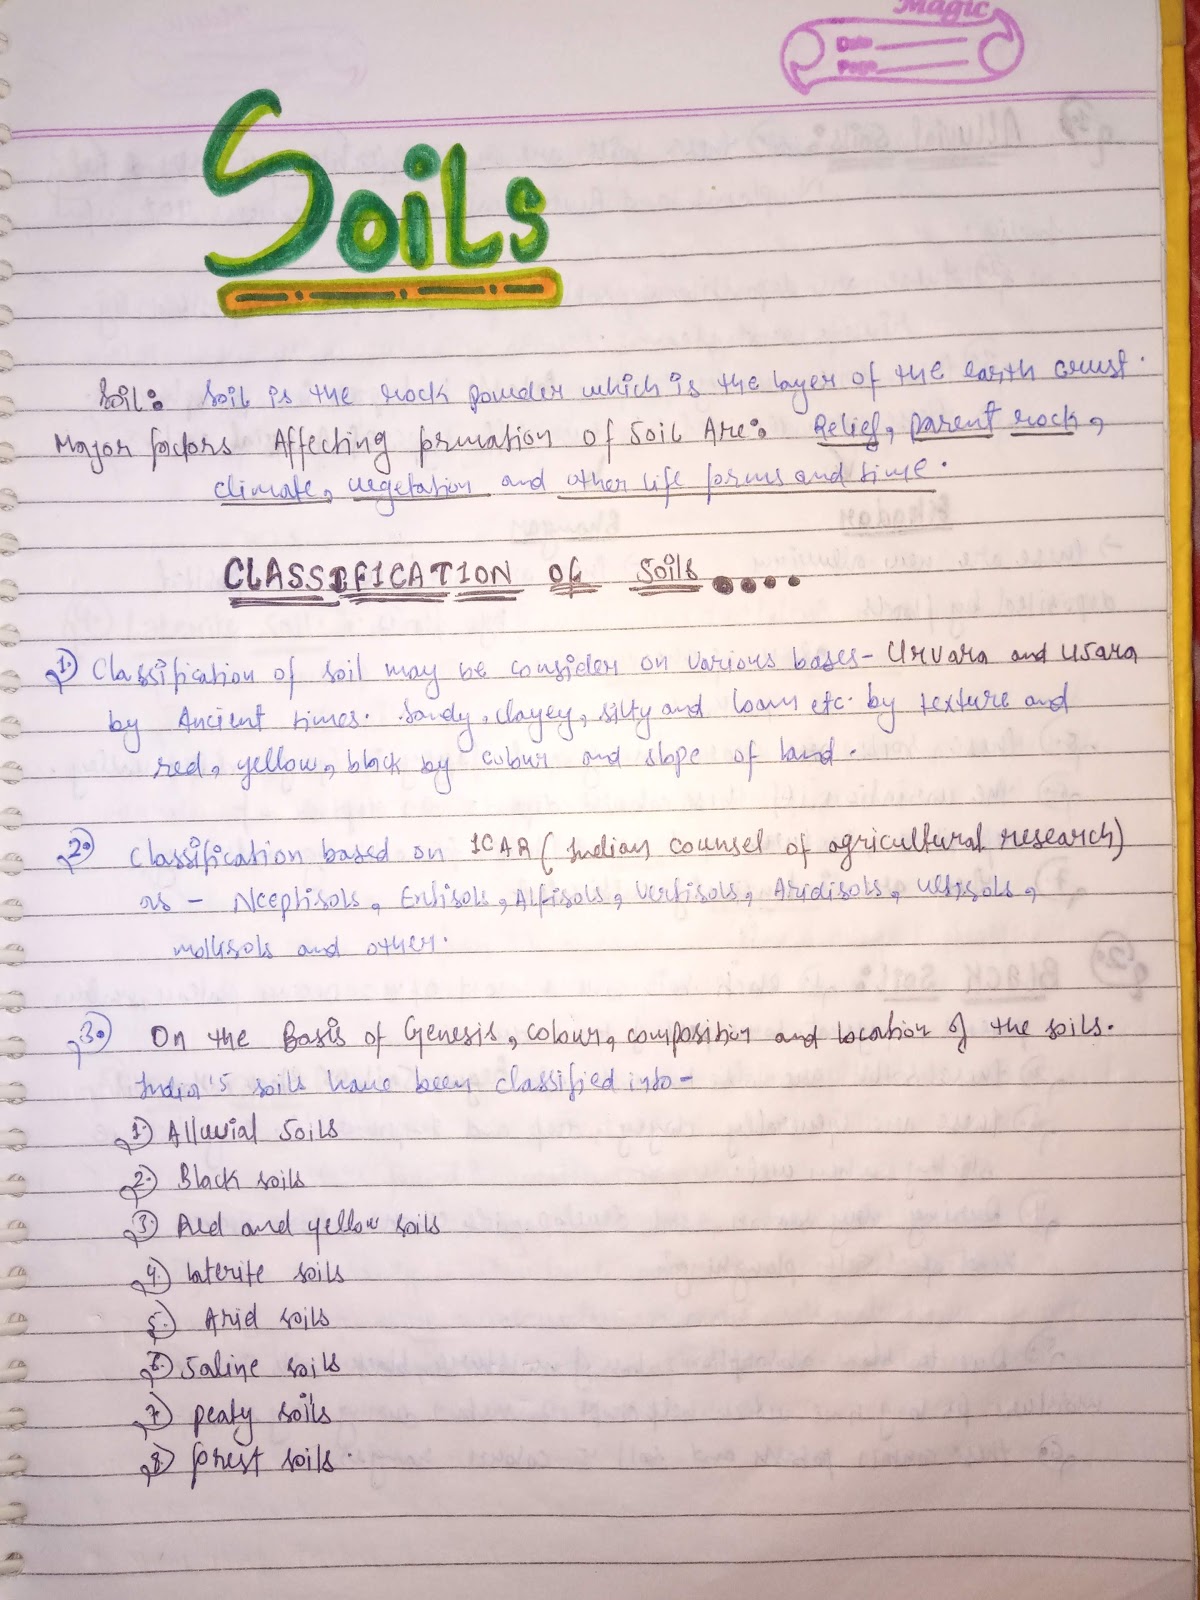 Magic
Date
Page
Soils
Soil: Soil is the rock powder which is the layer of the earth crust.
Major factors Affecting formation of Soil Are: Relief, parent rock,
climate, vegetation and other life forms and time.
CLASSIFICATION OF Soils....
1. Classification of soil may be consider on various bases - Urvara and Usara
by Ancient times. Sandy, clayey, silty and loam etc. by texture and
red, yellow, black by colour and slope of land.
2. Classification based on ICAR (Indian counsel of agricultural research)
as - Nceptisols, Entisols, Alfisols, Vertisols, Aridisols, Ultisols,
mollisols and other.
3. On the Basis of Genesis, colour, composition and location of the soils.
India's soils have been classified into -
1. Alluvial Soils
2. Black soils
3. Red and yellow soils
4. laterite soils
5. Arid soils
6. Saline soils
7. peaty soils
8. forest soils.